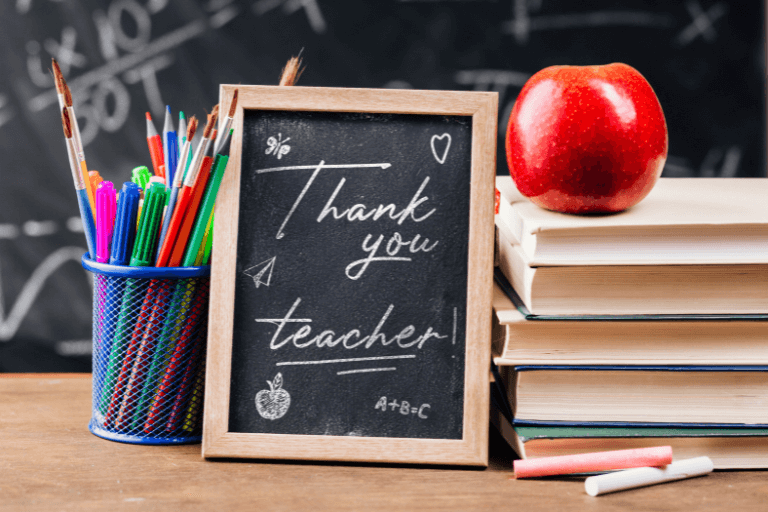 Thank
you
teacher!
A+B=C